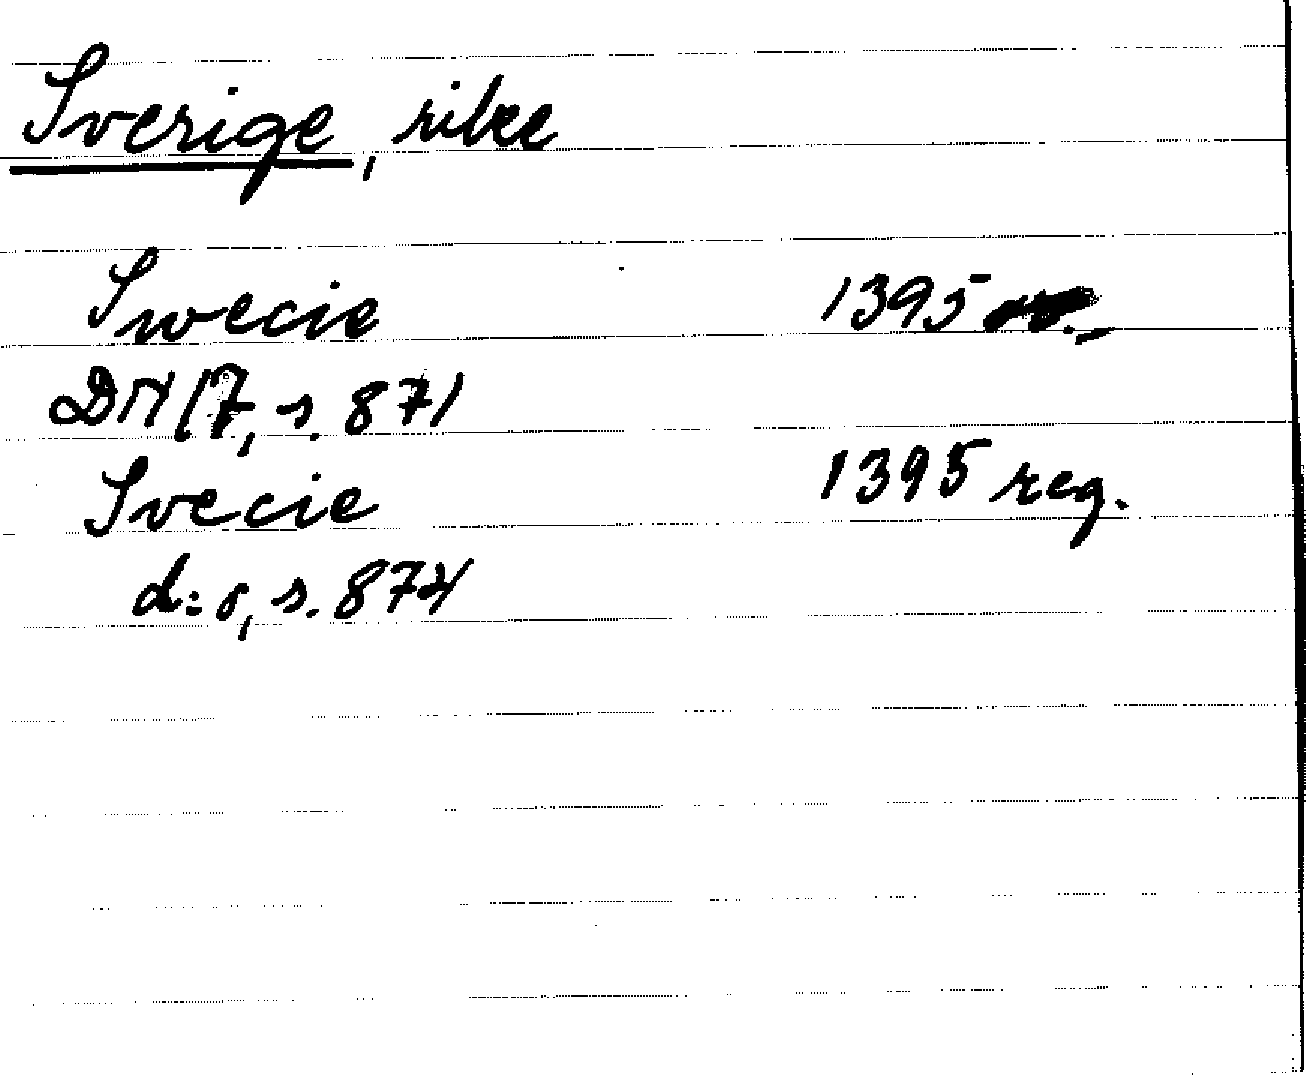 Sverige, rike
Swecie 1395
DN 17, s. 871
Svecie 1395 reg.
d:o, s. 874